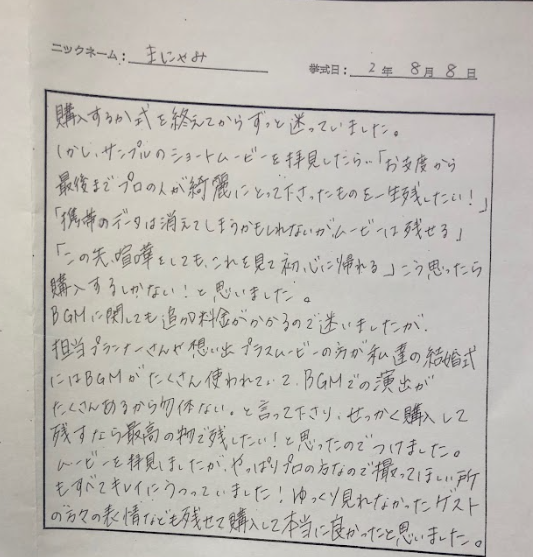 ニックネーム: まにゃみ 挙式日: 2年 8月 8日
購入するか式を終えてからずっと迷っていました。
しかし、サンプルのショートムービーを拝見したら…「お支度から
最後までプロの人が綺麗にとって下さったものを一生残したい!」
「携帯のデータは消えてしまうかもしれないがムービーは残せる」
「この先、喧嘩をしても、これを見て初心に帰れる」こう思ったら
購入するしかない!と思いました。
BGMに関しても追加料金がかかるので迷いましたが、
担当プランナーさんや想い出プラスムービーの方が私達の結婚式
にはBGMがたくさん使われていて、BGMでの演出が
たくさんあるから勿体ない。と言って下さり、せっかく購入して
残すなら最高の物で残したい!と思ったのでつけました。
ムービーを拝見しましたが、やっぱりプロの方なので撮ってほしい所
もすべてキレイにうつっていました!ゆっくり見れなかったゲスト
の方々の表情なども残せて購入して本当に良かったと思いました。